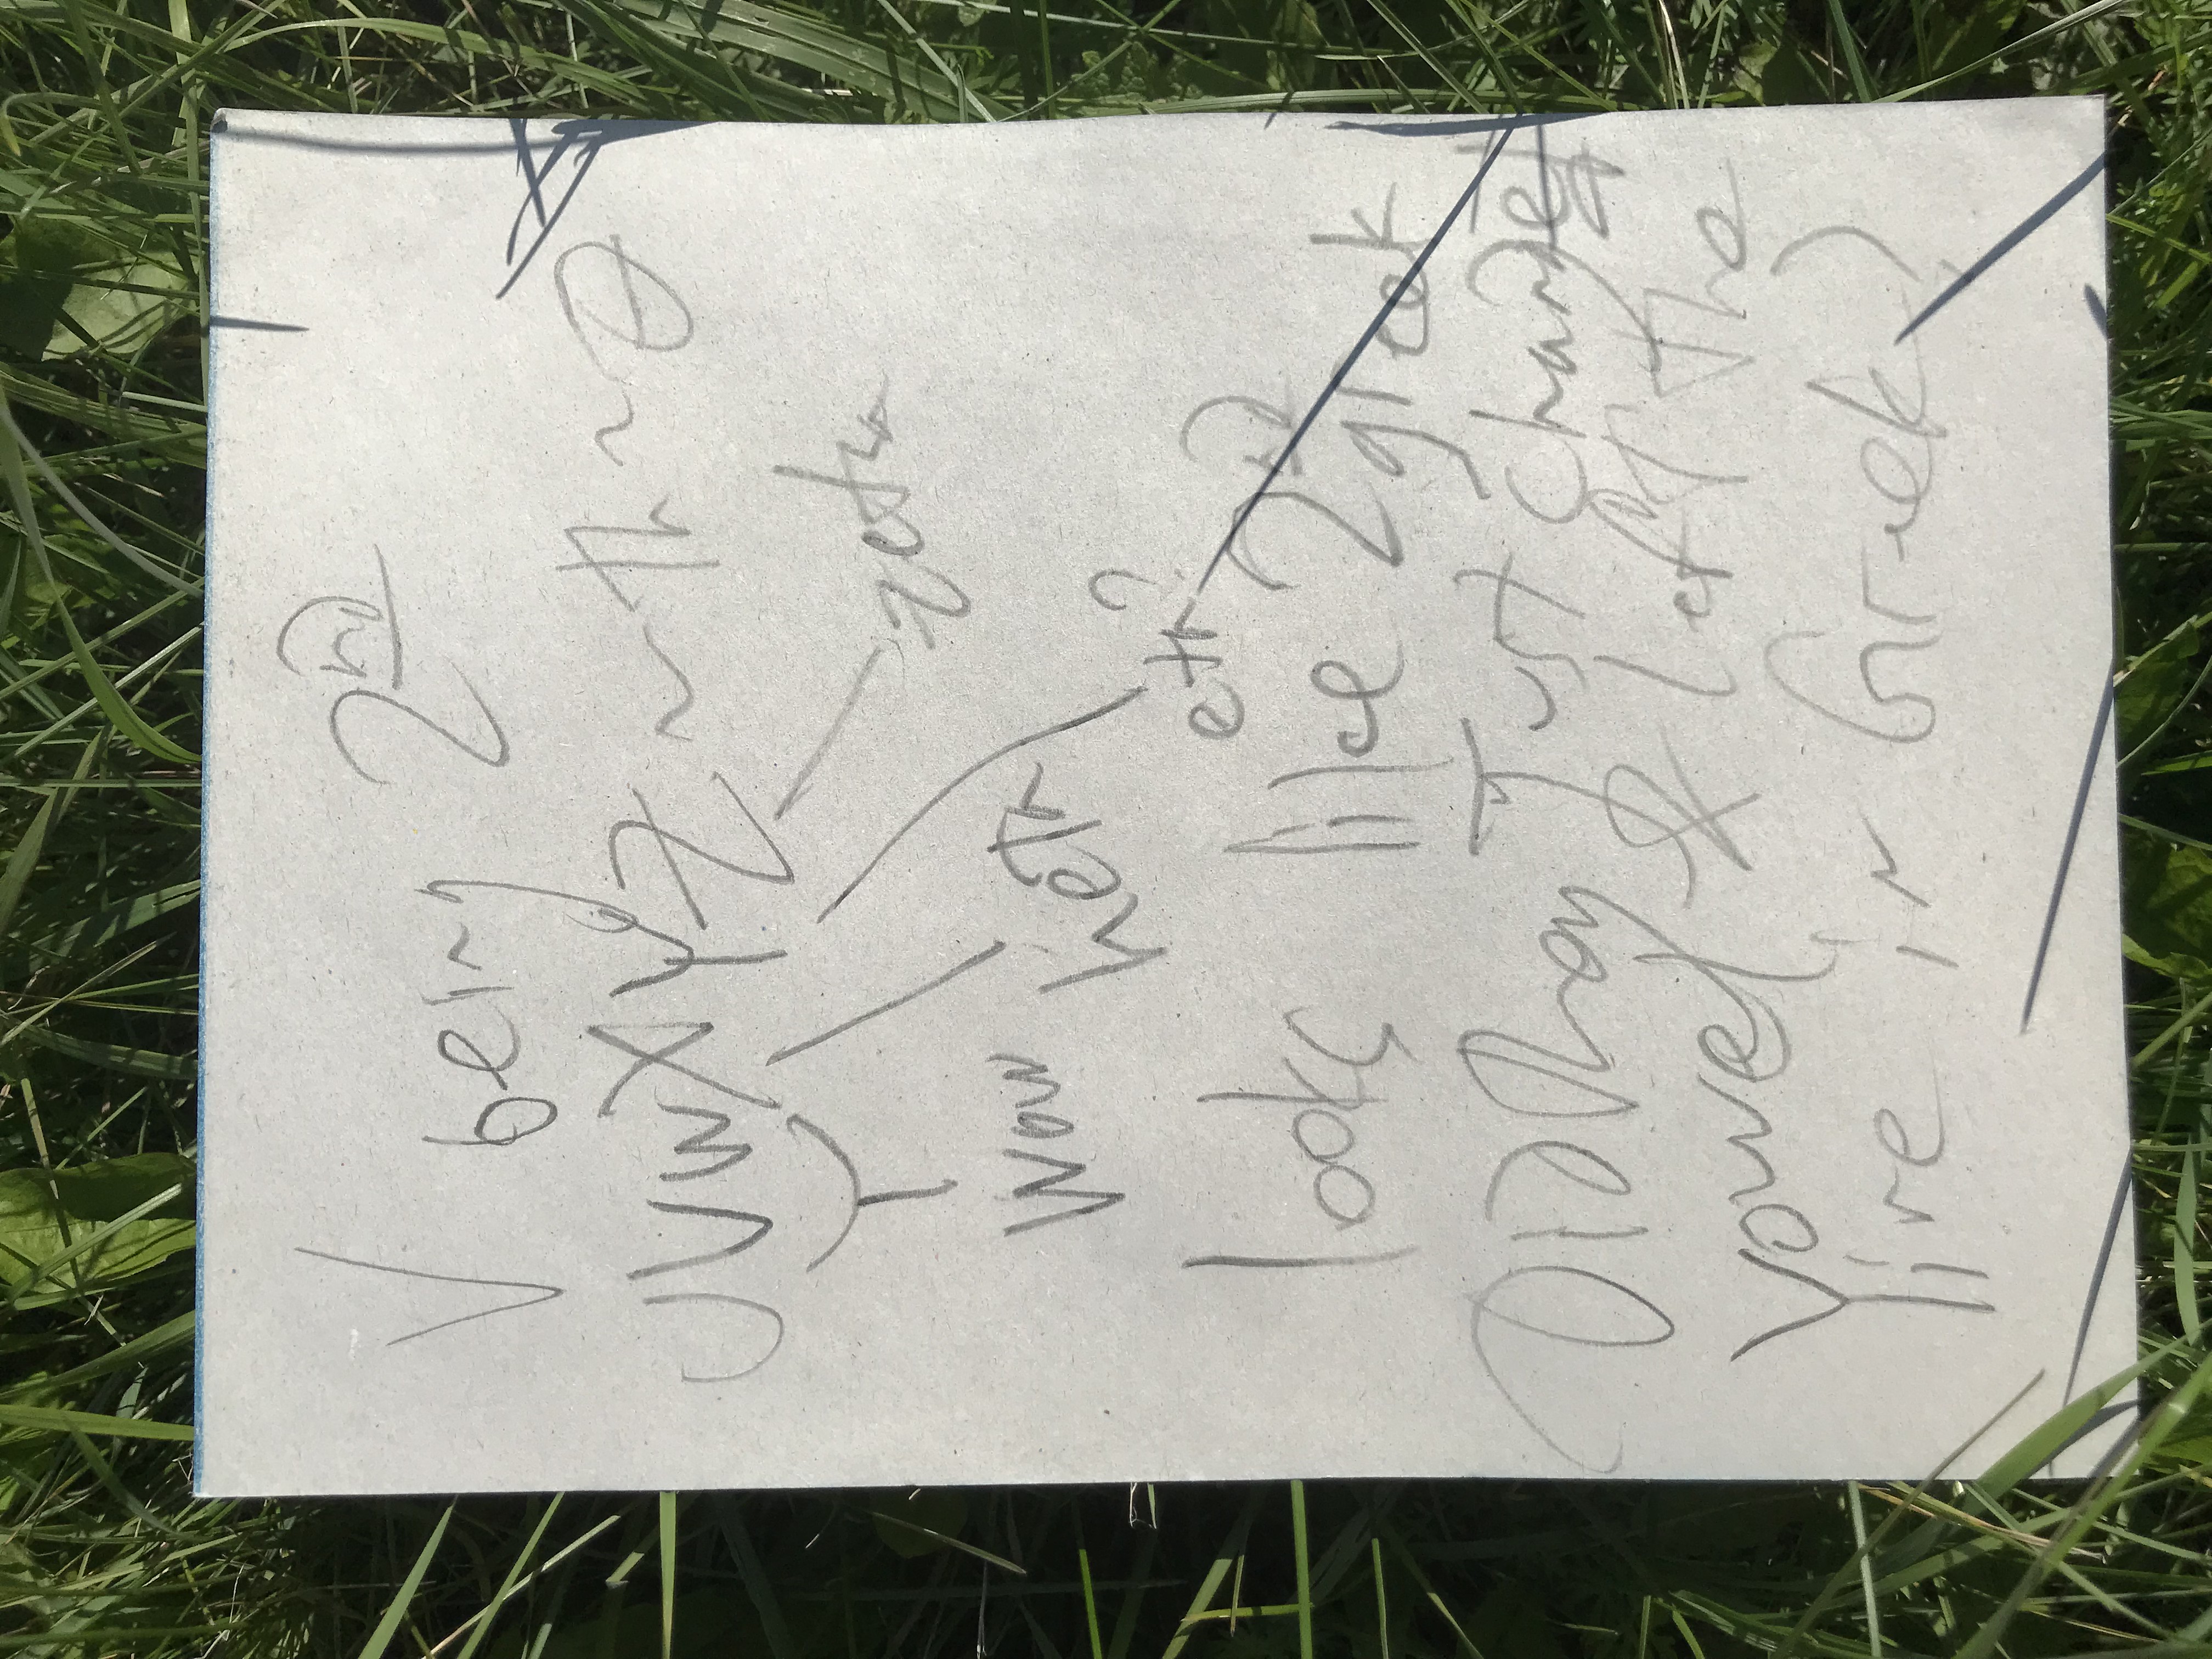 V being 2nd
UVWXYZ ~ th ~ θ
zeta
Wow heta
eth?
looks like 2nd greek
Did they Just change
vowel & left the
line in Greek?